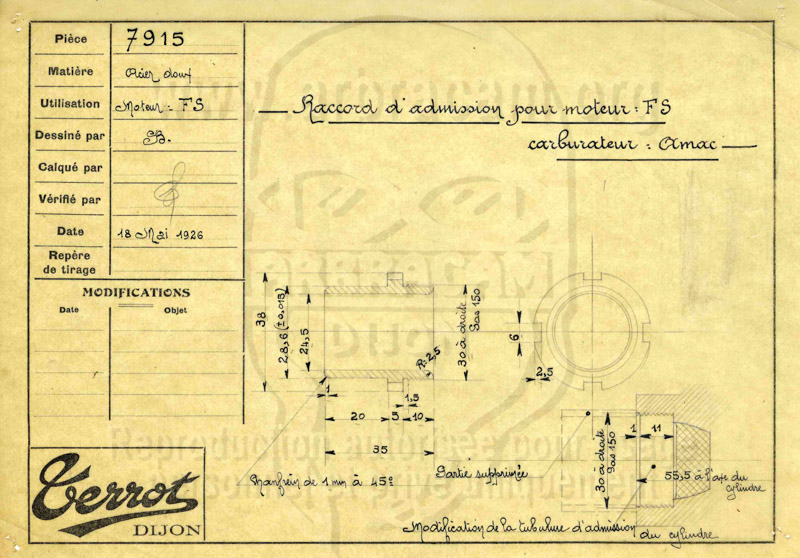 Pièce 7915
Matière Acier doux
Utilisation Moteur = FS
Dessiné par B.
Calqué par
Vérifié par
Date 18 Mai 1926
Repère
de tirage
MODIFICATIONS
Date Objet
Raccord d'admission pour moteur = FS
carburateur = Amac
38
28,6 (±0.015)
24,5
R=2,5
30 à droite
Pas 150
6
2,5
1
1,5
20 5 10
35
Chanfrein de 1 mm à 45°
Partie supprimée
30 à droite
Pas 150
1 11
55,5 à l'axe du
cylindre
Modification de la tubulure d'admission
du cylindre
Terrot
DIJON
Reproduction autorisée pour